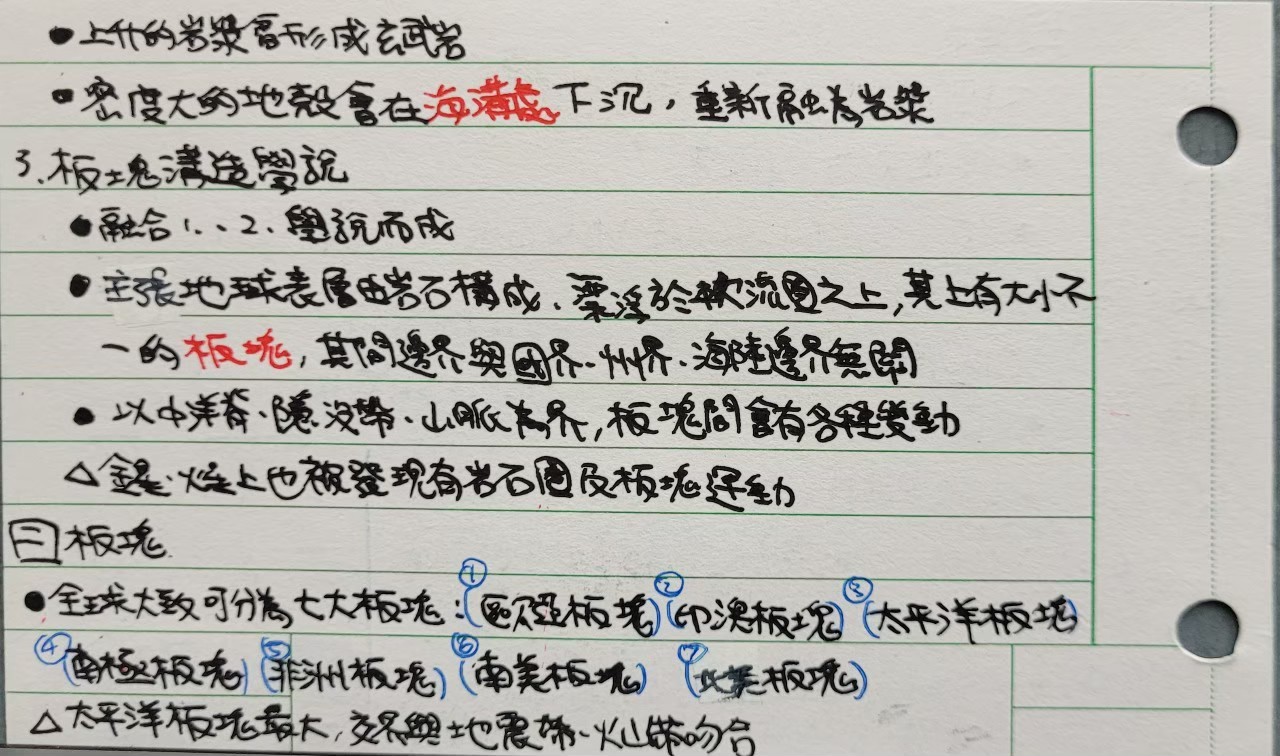 ●上升的岩漿會形成玄武岩
●密度大的地殼會在海溝處下沉，重新融為岩漿
3.板塊溝造學說
●融合1.、2.學說而成
●主張地球表層由岩石構成、漂浮於軟流圈之上，其上有大小不
一的板塊，其間邊界與國界、州界、海陸邊界無關
●以中洋脊、隱沒帶、山脈為界，板塊間會有各種變動
△金星、火星上也被發現有岩石圈及板塊運動
三板塊
●全球大致可分為七大板塊：①(歐亞板塊)②(印澳板塊)③(太平洋板塊)
④(南極板塊)⑤(非洲板塊)⑥(南美板塊)⑦(北美板塊)
△太平洋板塊最大，交界與地震帶、火山帶吻合